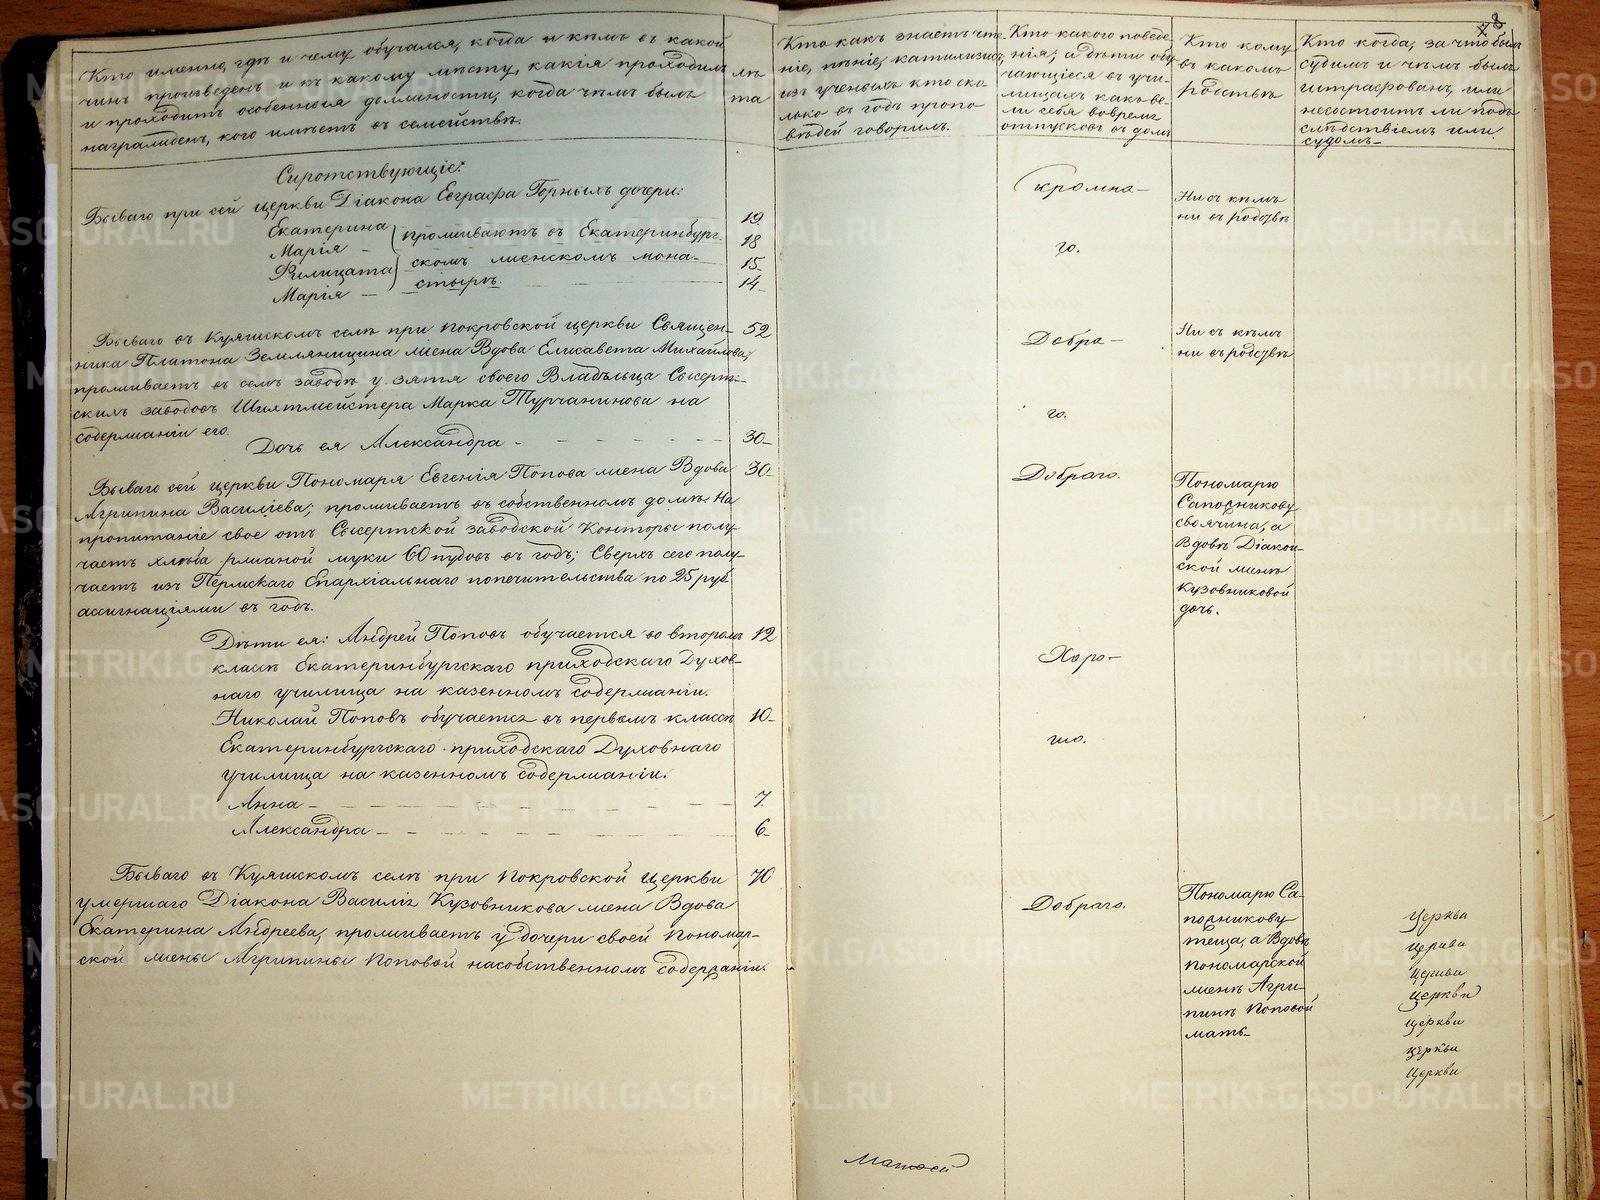 Кто именно, гдѣ и чему обучался, когда и кѣмъ въ какой
чинъ произведенъ и къ какому мѣсту, какія проходилъ
и проходитъ особенныя должности, когда чѣмъ былъ
награжденъ, кого имѣетъ въ семействѣ.
лѣ
та
Кто какъ знаетъ чте
ніе, пѣніе, катихизисъ,
изъ ученыхъ кто ско
лько въ годъ пропо
вѣдей говорилъ.
Кто какого поведе
нія; а дѣти обу
чающіеся въ учи-
лищахъ какъ ве-
ли себя вовремя
отпусковъ въ домъ
Кто кому
въ какомъ
родствѣ
Кто когда, за что былъ
судимъ и чѣмъ былъ
штрафованъ, или
несостоитъ ли подъ
слѣдствіемъ или
судомъ
8
Сиротствующіе:
Бываго при сей церкви Діакона Евграфа Горныхъ дочери:
Екатерина
Марія
Филицата
Марія
проживаютъ въ Екатеринбург-
скомъ женскомъ мона-
стырѣ.
19
18
15
14
Скромна-
го.
Ни съ кѣмъ
ни въ родствѣ
Бываго въ Куяшскомъ селѣ при Покровской церкви Священ-
ника Платона Земляницина жена Вдова Елисавета Михайлова,
проживаетъ въ семъ заводѣ у зятя своего Владѣльца Сысерт-
скихъ заводовъ Шихтмейстера Марка Турчанинова на
содержаніи его.
52
Дочь ея Александра
30
Добра-
го.
Ни съ кѣмъ
ни въ родствѣ
Бываго сей церкви Пономаря Евгенія Попова жена Вдова
Агрипина Василіева; проживаетъ въ собственномъ домѣ. На
пропитаніе свое отъ Сысертской заводской Конторы полу-
чаетъ хлѣба ржаной муки 60 пудовъ въ годъ; Сверхъ сего полу-
чаетъ изъ Пермскаго Епархіальнаго попечительства по 25 руб.
ассигнаціями въ годъ.
30
Добраго.
Пономарю
Сапожникову
своячина, а
Вдовѣ Діакон-
ской женѣ
Кузовниковой
дочь.
Дѣти ея: Андрей Поповъ обучается во второмъ
классѣ Екатеринбургскаго приходскаго Духов-
наго училища на казенномъ содержаніи.
12
Николай Поповъ обучается въ первомъ классѣ
Екатеринбургскаго приходскаго Духовнаго
училища на казенномъ содержаніи.
10
Хоро-
шо.
Анна
7
Александра
6
Бываго въ Куяшскомъ селѣ при Покровской церкви
умершаго Діакона Василія Кузовникова жена Вдова
Екатерина Андреева, проживаетъ у дочери своей Пономар-
ской жены Агрипины Поповой на собственномъ содержаніи.
70
Добраго.
Пономарю Са-
пожникову
теща, а Вдовѣ
пономарской
женѣ Агри-
пинѣ Поповой
мать
Церкви
церкви
церкви
церкви
церкви
церкви
Церкви
METRIKI.GASO-URAL.RU